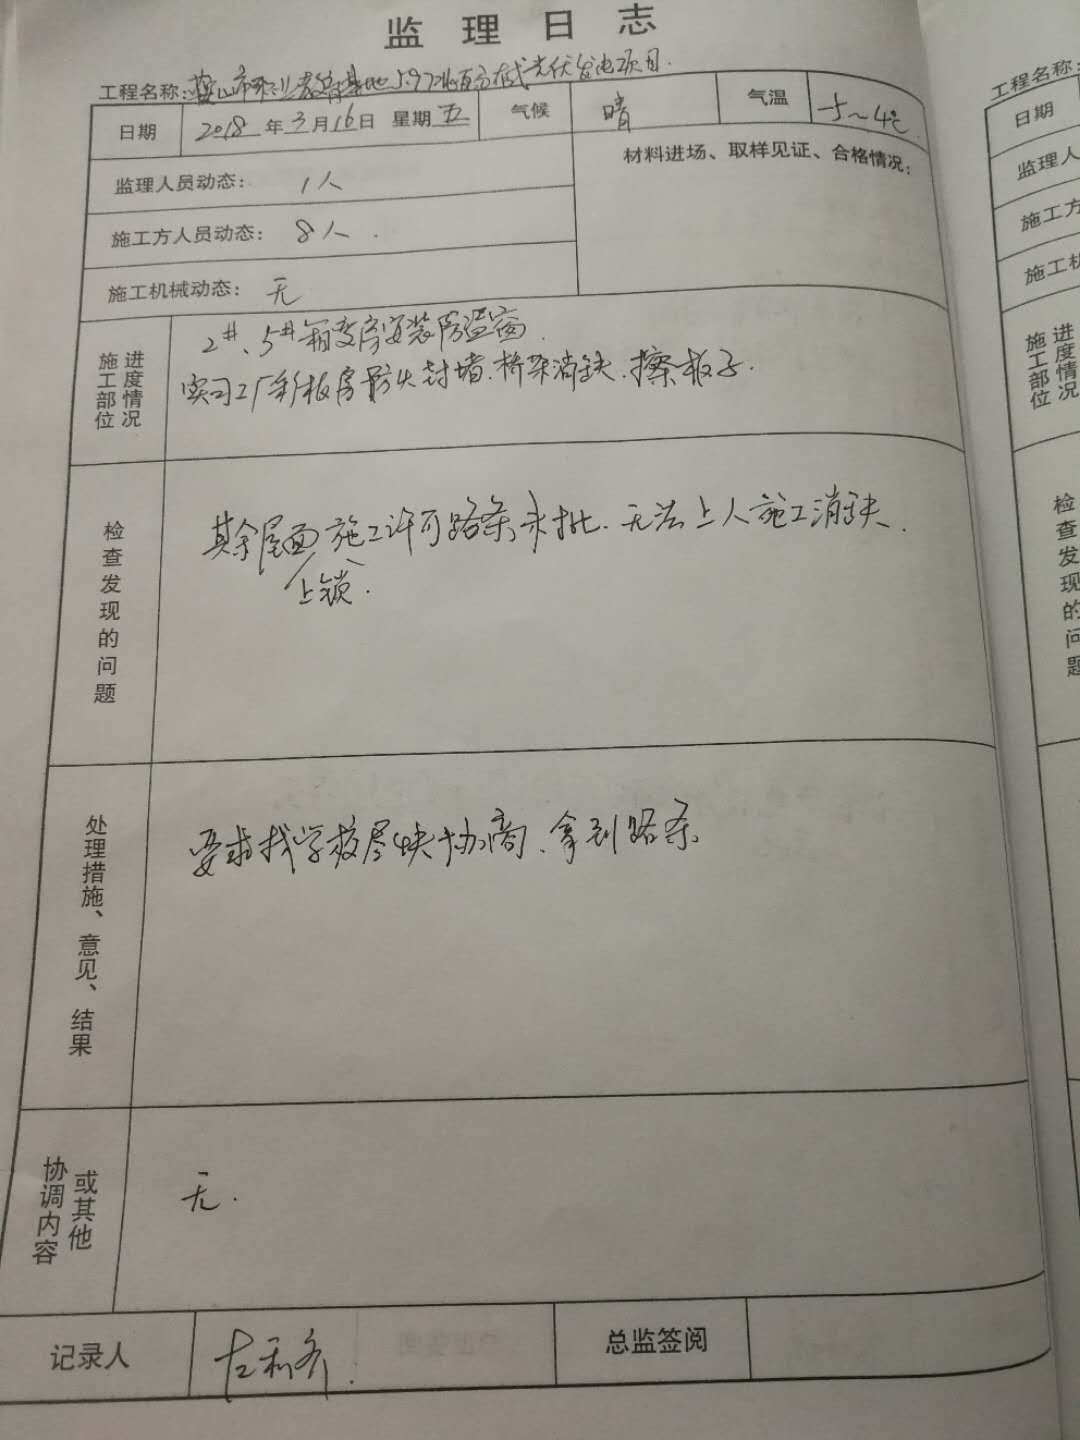 监理日志
工程名称:鞍山市职业教育基地5.972兆瓦分布式光伏发电项目.
日期 2018年3月16日 星期五 气候 晴 气温 -5~4℃
监理人员动态: 1人 材料进场、取样见证、合格情况:
施工方人员动态: 8人.
施工机械动态: 无
施工部位进度情况
2#、5#箱变房安装防盗窗
实习工厂彩板房防火封堵.桥架消缺.擦板子.
检查发现的问题
其余屋面施工许可路条未批.无法上人施工消缺.
上锁.
处理措施、意见、结果
要求找学校尽快协商、拿到路条
协调内容或其他
无.
记录人 左利齐. 总监签阅
工程名称:
日期
监理人
施工方
施工机
施工部位进度情况
检查发现的问题